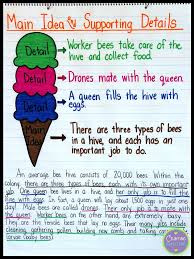 Main Idea & Supporting Details
Detail
Worker bees take care of the
hive and collect food.
Detail
Drones mate with the queen.
Detail
A queen fills the hive with
eggs.
Main
Idea
There are three types of
bees in a hive, and each has an
important job to do.
An average bee hive consists of 20,000 bees. Within the
colony, there are three types of bees, each with its own important
job. One
queen
fill
the hive with eggs. In fact, a queen will lay about 1,500 eggs in just one
day! Male bees are called drones. Their only job is to mate with the
queen. Worker bees on the other hand, are extremely busy.
They are female bees that lay no eggs. Their many jobs include
cleaning, gathering pollen, building new combs and taking care of
larvae (baby bees).